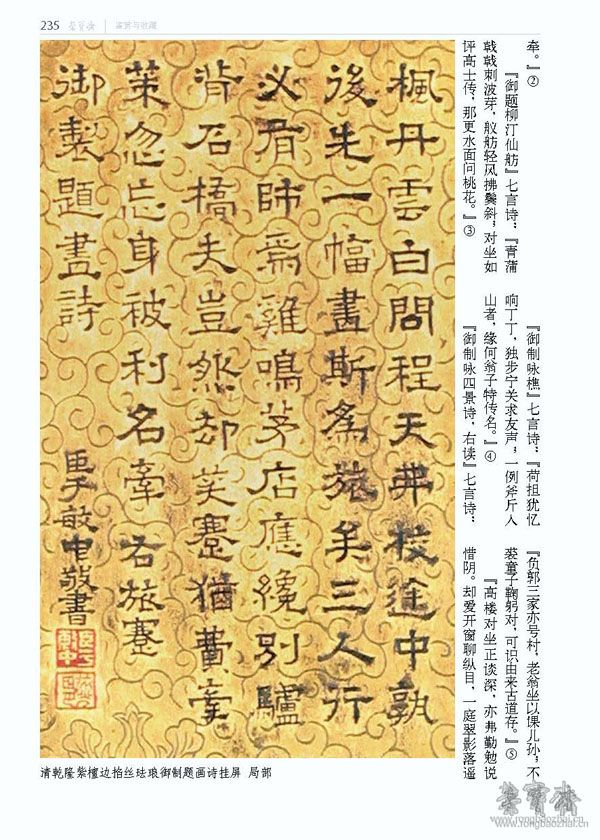 235 荣宝斋 鉴赏与收藏
牵。』②
『御题柳汀仙舫』七言诗：『青蒲
戟戟刺波芽，舣舫轻风拂鬓斜；对坐如
评高士传，那更水面问桃花。』③
『御制咏樵』七言诗：『荷担犹忆
响丁丁，独步宁关求友声；一例斧斤入
山者，缘何翁子特传名。』④
『御制咏四景诗，右读』七言诗：
『负郭三家亦号村，老翁坐以课儿孙；不
裘童子鞠躬对，可识由来古道存。』⑤
『高楼对坐正谈深，亦弗勤勉说
惜阴。却爱开窗聊纵目，一庭翠影落遥
楓丹雲白問程天弗校途中孰
後先一幅畫斯為旅矣三人行
必有師焉雞鳴茅店應纔別驢
背石橋夫豈然却笑蹇猶費牽
策忽忘身被利名牽右旅蹇
御製題畫詩
臣于敏中敬書
清乾隆紫檀边掐丝珐琅御制题画诗挂屏 局部
荣宝斋
www.rongbaozhai.cn